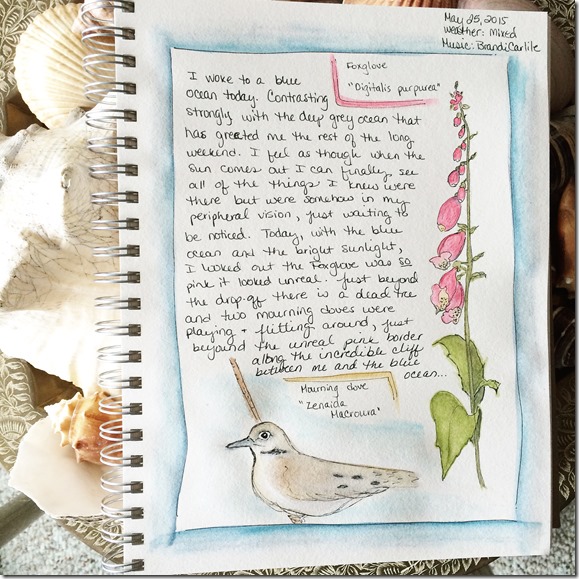 May 25, 2015
Weather: Mixed
Music: Brandi Carlile
Foxglove
"Digitalis purpurea"
I woke to a blue
ocean today. Contrasting
strongly with the deep grey ocean that
has greeted me the rest of the long
weekend. I feel as though when the
sun comes out I can finally see
all of the things I knew were
there but were somehow in my
peripheral vision, just waiting to
be noticed. Today, with the blue
ocean and the bright sunlight,
I looked out the Foxglove was so
pink it looked unreal. Just beyond
the drop-off there is a dead tree
and two mourning doves were
playing + flitting around, just
beyound the unreal pink border
along the incredible cliff
between me and the blue
ocean...
Mourning dove
"Zenaida
Macroura"